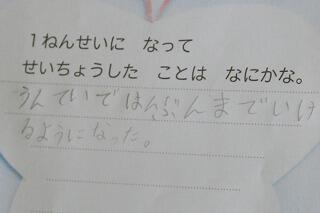 1ねんせいに なって
せいちょうした ことは なにかな。
うんていではんぶんまでいけ
るようになった。